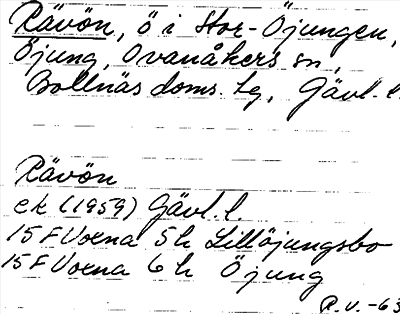 Rävön, ö i Stor-Öjungen,
Öjung, Ovanåkers sn,
Bollnäs doms. tg, Gävl. l.
Rävön
ek (1959) Gävl. l.
15 F Voxna 5h Lillöjungsbo
15 F Voxna 6h Öjung
R.V. -63